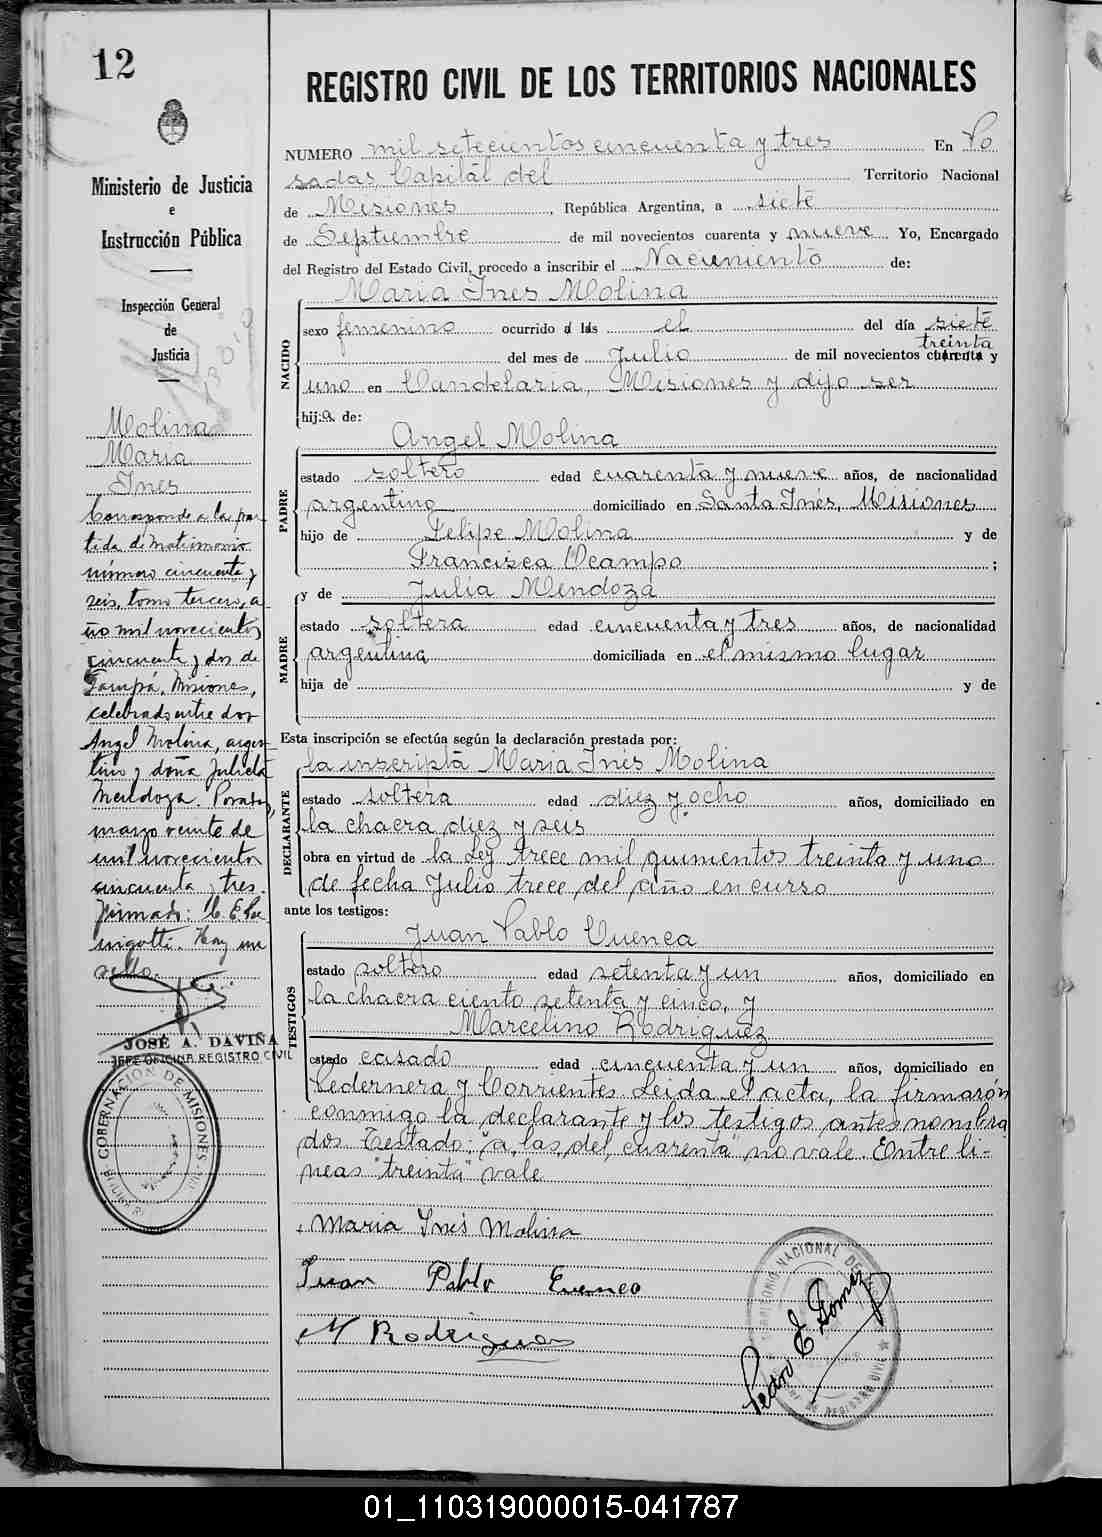 12
Ministerio de Justicia
e
Instrucción Pública
Inspección General
de
Justicia
Molina
Maria
Ines
Corresponde a la par-
tida de Matrimonio
número cincuenta y
seis, tomo tercero, a-
ño mil novecientos
cincuenta y dos de
Misiones,
celebrado entre don
Angel Molina, argen-
tino y doña Julieta
Mendoza. Posadas,
marzo veinte de
mil novecientos
cincuenta y tres.
Firmado:
Hay un
sello.
JOSÉ A. DAVIÑA
JEFE OFICINA REGISTRO CIVIL
GOBERNACION DE MISIONES
REGISTRO CIVIL DE LOS TERRITORIOS NACIONALES
NUMERO mil setecientos cincuenta y tres En Po
sadas Capital del Territorio Nacional
de Misiones, República Argentina, a siete
de Septiembre de mil novecientos cuarenta y nueve Yo, Encargado
del Registro del Estado Civil, procedo a inscribir el Nacimiento de:
NACIDO
Maria Ines Molina
sexo femenino ocurrido a las el del día siete
treinta
del mes de Julio de mil novecientos cuarenta y
uno en Candelaria, Misiones y dijo ser
hija de:
PADRE
Angel Molina
estado soltero edad cuarenta y nueve años, de nacionalidad
argentino domiciliado en Santa Inés, Misiones
hijo de Felipe Molina y de
Francisca Ocampo ;
MADRE
y de Julia Mendoza
estado soltera edad cincuenta y tres años, de nacionalidad
argentina domiciliada en el mismo lugar
hija de y de
Esta inscripción se efectúa según la declaración prestada por:
DECLARANTE
la inscripta Maria Inés Molina
estado soltera edad diez y ocho años, domiciliado en
la chacra diez y seis
obra en virtud de la Ley trece mil quinientos treinta y uno
de fecha Julio trece del año en curso
ante los testigos:
TESTIGOS
Juan Pablo Cuenca
estado soltero edad setenta y un años, domiciliado en
la chacra ciento setenta y cinco, y
Marcelino Rodriguez
estado casado edad cincuenta y un años, domiciliado en
Pedernera y Corrientes Leida el acta, la firmarón
conmigo la declarante y los testigos antes nombra
dos. Testado: "a las, del, cuarenta" no vale. Entre li-
neas "treinta" vale
Maria Inés Molina
Juan Pablo Cuenca
M Rodriguez
Pedro E. Gomez
01_110319000015-041787